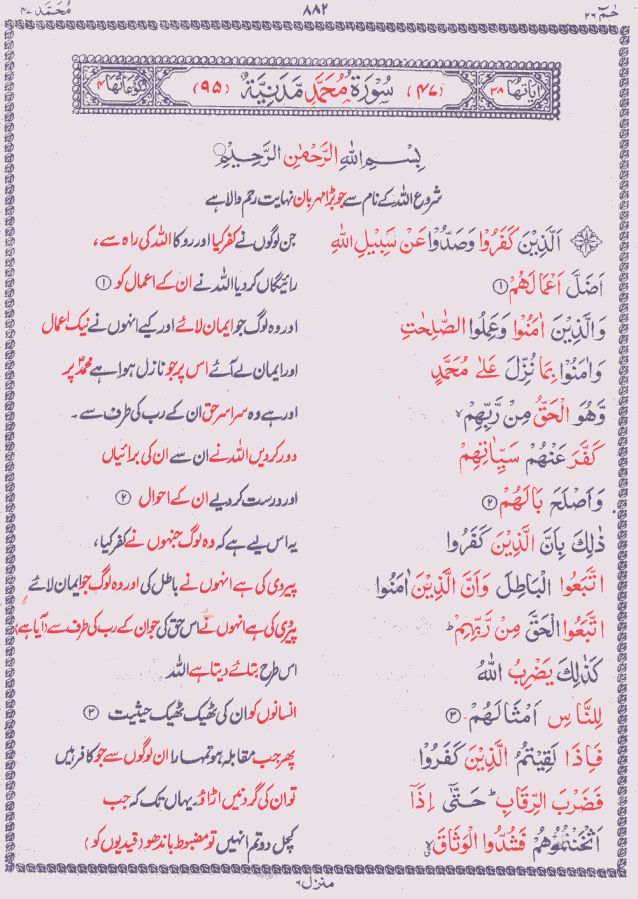 حٰمٓ ۲۶ ۸۸۲ مُحَمَّد ۴۷
اٰیَاتُهَا ۳۸ (۴۷) سُوْرَةُ مُحَمَّدٍ مَدَنِیَّةٌ (۹۵) رُكُوْعَاتُهَا ۴
بِسْمِ اللّٰهِ الرَّحْمٰنِ الرَّحِیْمِ
شروع اللہ کے نام سے جو بڑا مہربان نہایت رحم والا ہے
اَلَّذِیْنَ كَفَرُوْا وَصَدُّوْا عَنْ سَبِیْلِ اللّٰهِ جن لوگوں نے کفر کیا اور روکا اللہ کی راہ سے،
اَضَلَّ اَعْمَالَهُمْ ۱ رائیگاں کر دیا اللہ نے ان کے اعمال کو ۱
وَالَّذِیْنَ اٰمَنُوْا وَعَمِلُوا الصّٰلِحٰتِ اور وہ لوگ جو ایمان لائے اور کیے انہوں نے نیک اعمال
وَاٰمَنُوْا بِمَا نُزِّلَ عَلٰی مُحَمَّدٍ اور ایمان لے آئے اس پر جو نازل ہوا ہے محمدؐ پر
وَّهُوَ الْحَقُّ مِنْ رَّبِّهِمْ ۙ اور ہے وہ سراسر حق ان کے رب کی طرف سے۔
كَفَّرَ عَنْهُمْ سَیِّاٰتِهِمْ دور کر دیں اللہ نے ان سے ان کی برائیاں
وَاَصْلَحَ بَالَهُمْ ۲ اور درست کر دیے ان کے احوال ۲
ذٰلِكَ بِاَنَّ الَّذِیْنَ كَفَرُوا یہ اس لیے ہے کہ وہ لوگ جنہوں نے کفر کیا،
اتَّبَعُوا الْبَاطِلَ وَاَنَّ الَّذِیْنَ اٰمَنُوا پیروی کی ہے انہوں نے باطل کی اور وہ لوگ جو ایمان لائے
اتَّبَعُوا الْحَقَّ مِنْ رَّبِّهِمْ ؕ پیروی کی ہے انہوں نے اس حق کی جو ان کے رب کی طرف سے (آیا ہے)
كَذٰلِكَ یَضْرِبُ اللّٰهُ اس طرح بتائے دیتا ہے اللہ
لِلنَّاسِ اَمْثَالَهُمْ ۳ انسانوں کو ان کی ٹھیک ٹھیک حیثیت ۳
فَاِذَا لَقِیْتُمُ الَّذِیْنَ كَفَرُوْا پھر جب مقابلہ ہو تمہارا ان لوگوں سے جو کافر ہیں
فَضَرْبَ الرِّقَابِ ؕ حَتّٰۤی اِذَاۤ تو ان کی گردنیں اڑاؤ۔ یہاں تک کہ جب
اَثْخَنْتُمُوْهُمْ فَشُدُّوا الْوَثَاقَ کچل دو تم انہیں تو مضبوط باندھو (قیدیوں کو)
منزل ۶